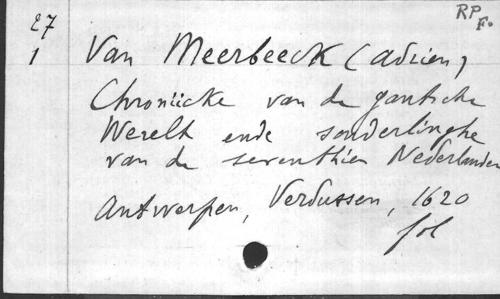 27
1
RP
F.
Van Meerbeeck (Adrien)
Chroniicke van de gantsche
Werelt ende sonderlinghe
van de seventhien Nederlanden
Antwerpen, Verdussen, 1620
fol